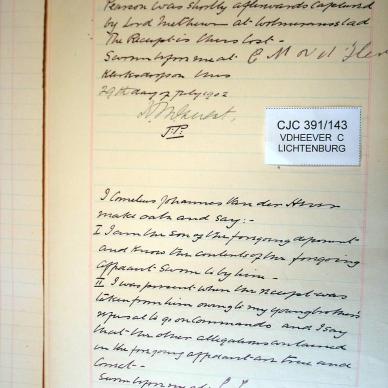 Person was shortly afterwards captured
by Lord Methuen at Wolmaransstad
The Receipt is thus lost -
Sworn before me at
Klerksdorp on this
29th day of July 1902
J.P.
CJC 391/143
VDHEEVER C
LICHTENBURG
I Cornelius Johannes Van der Heever
make oath and say:-
I I am the son of the foregoing deponent
and know the contents of the foregoing
affidavit sworn to by him -
II I was present when the receipt was
taken from him owing to my young brother's
refusal to go on Commando and I say
that the other allegations contained
in the foregoing affidavit are true and
Correct -
Sworn before me at